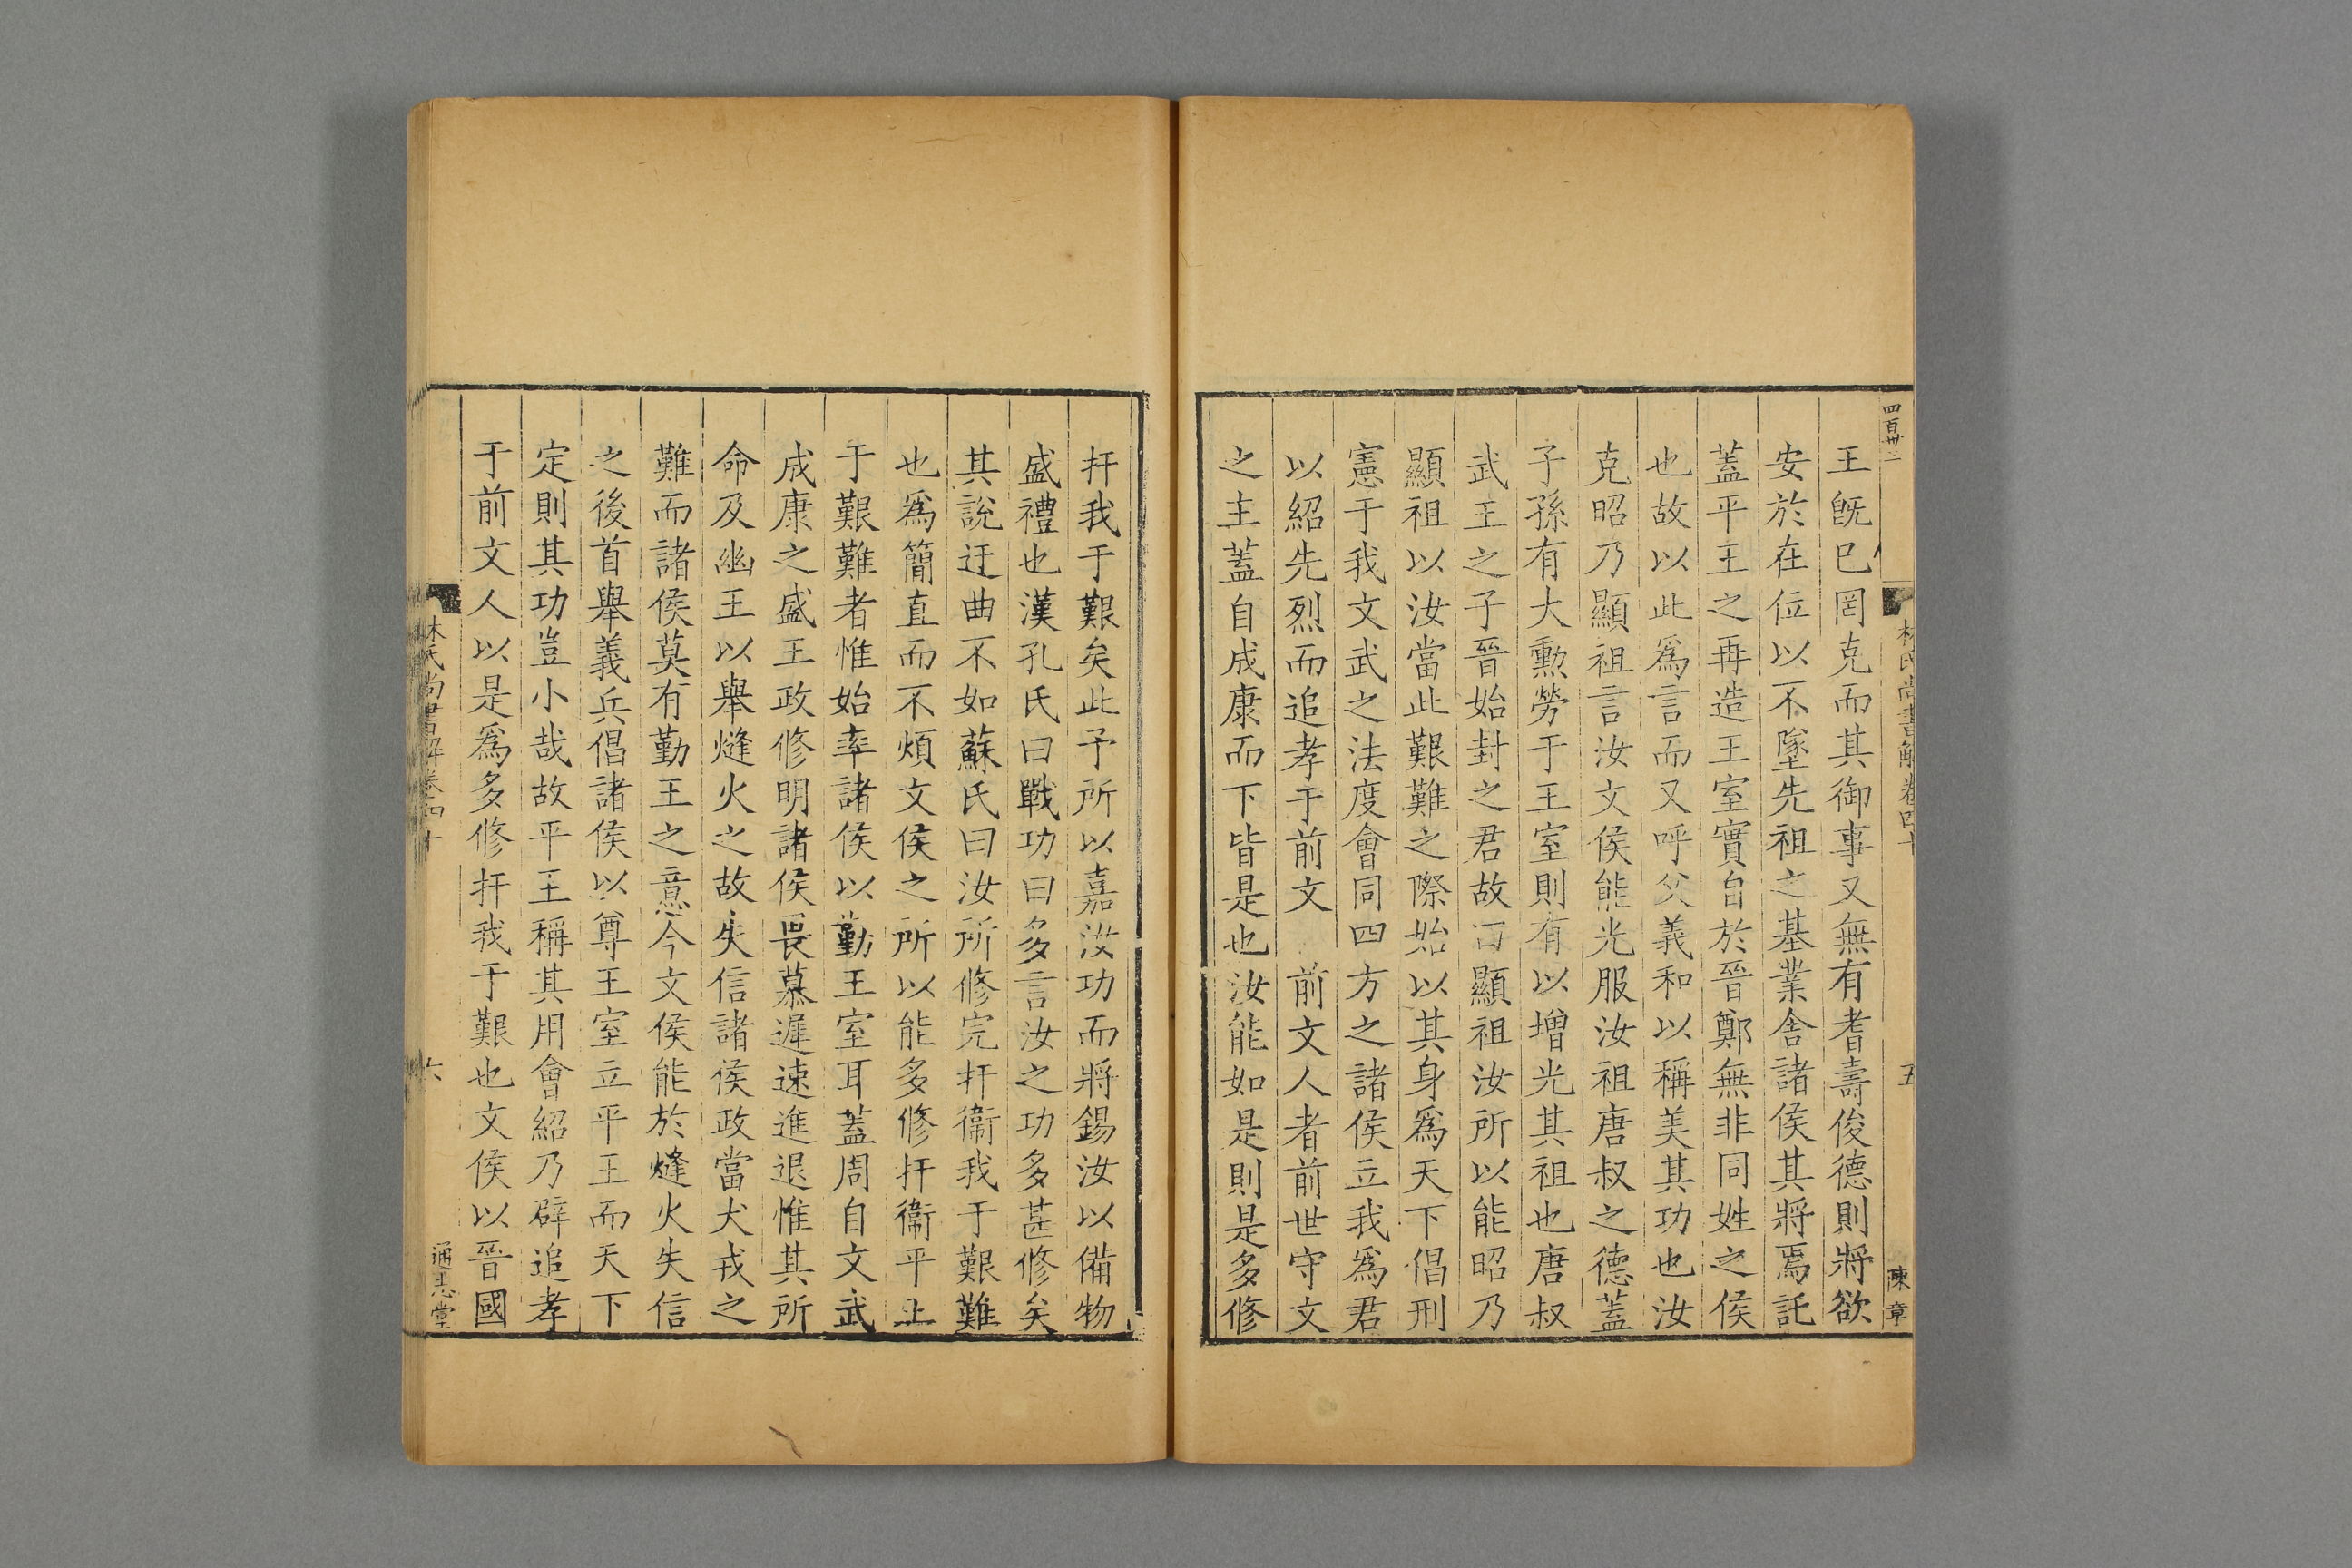 四百卅二
林氏尚書解卷四十
五
陳章
王旣已罔克而其御事又無有耆壽俊德則將欲
安於在位以不墜先祖之基業舍諸侯其將焉託
蓋平王之再造王室實自於晉鄭無非同姓之侯
也故以此爲言而又呼父義和以稱美其功也汝
克昭乃顯祖言汝文侯能光服汝祖唐叔之德蓋
子孫有大勳勞于王室則有以增光其祖也唐叔
武王之子晉始封之君故曰顯祖汝所以能昭乃
顯祖以汝當此艱難之際始以其身爲天下倡刑
憲于我文武之法度會同四方之諸侯立我爲君
以紹先烈而追孝于前文 前文人者前世守文
之主蓋自成康而下皆是也汝能如是則是多修
扞我于艱矣此予所以嘉汝功而將錫汝以備物
盛禮也漢孔氏曰戰功曰多言汝之功多甚修矣
其說迂曲不如蘇氏曰汝所修完扞衞我于艱難
也爲簡直而不煩文侯之所以能多修扞衞平王
于艱難者惟始率諸侯以勤王室耳蓋周自文武
成康之盛王政修明諸侯畏慕遲速進退惟其所
命及幽王以舉燧火之故失信諸侯政當犬戎之
難而諸侯莫有勤王之意今文侯能於燧火失信
之後首舉義兵倡諸侯以尊王室立平王而天下
定則其功豈小哉故平王稱其用會紹乃辟追孝
于前文人以是爲多修扞我于艱也文侯以晉國
林氏尚書解卷四十
六
通志堂